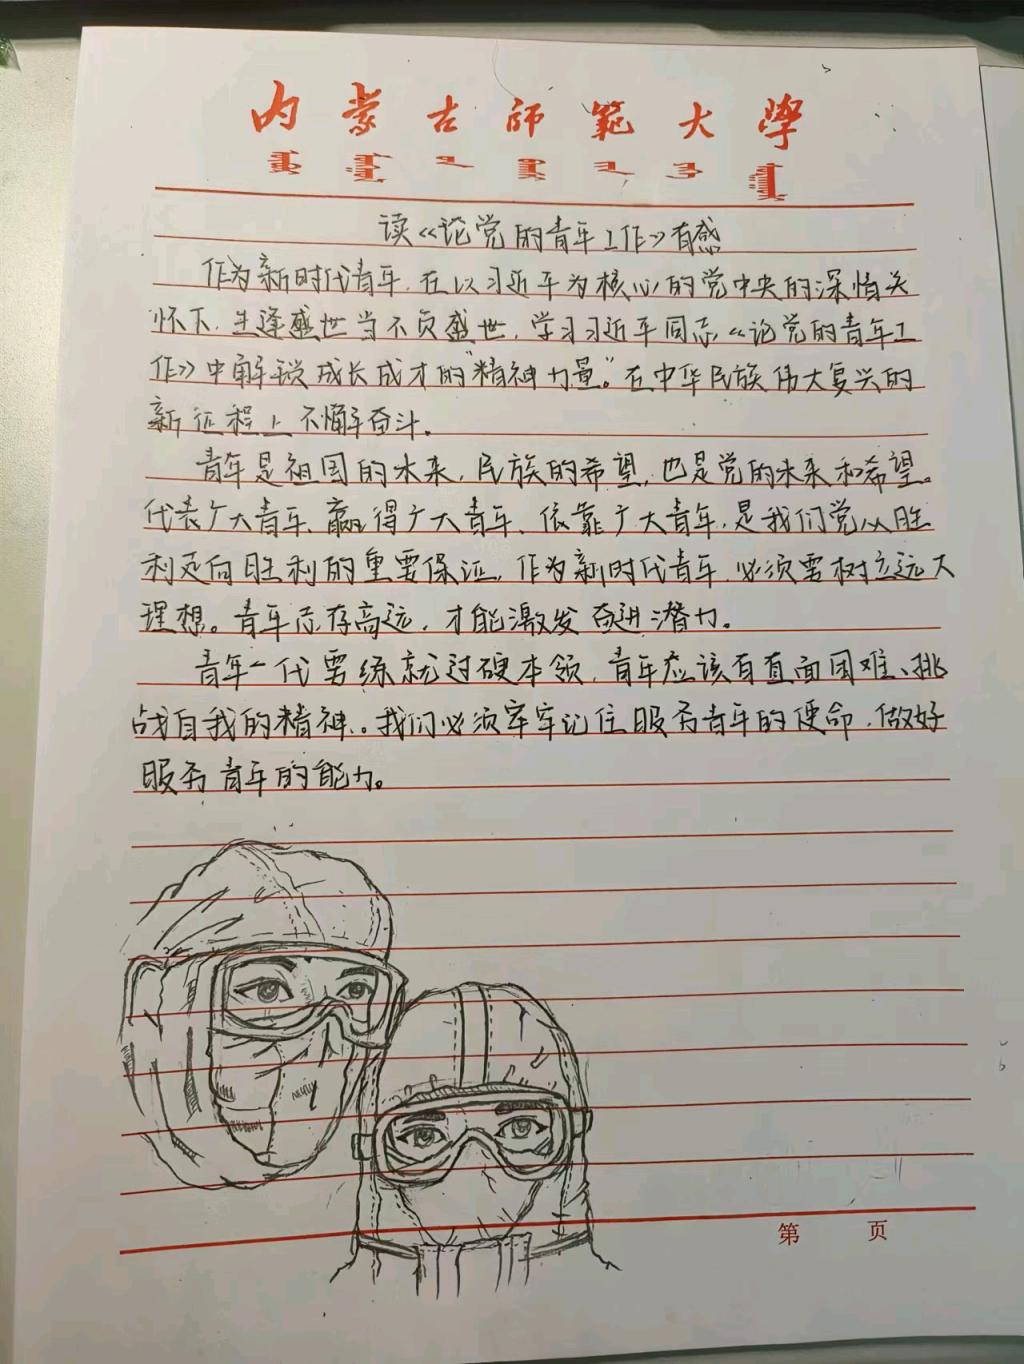 内蒙古师范大学
读《论党的青年工作》有感
作为新时代青年，在以习近平为核心的党中央的深情关
怀下，生逢盛世当不负盛世，学习习近平同志《论党的青年工
作》中解锁成长成才的"精神力量。"在中华民族伟大复兴的
新征程上不懈奋斗．
青年是祖国的未来，民族的希望，也是党的未来和希望。
代表广大青年、赢得广大青年、依靠广大青年，是我们党从胜
利走向胜利的重要保证，作为新时代青年，必须要树立远大
理想。青年志存高远，才能激发奋进潜力。
青年一代要练就过硬本领，青年应该有直面困难、挑
战自我的精神．。我们必须牢牢记住服务青年的使命，做好
服务青年的能力。
第 页